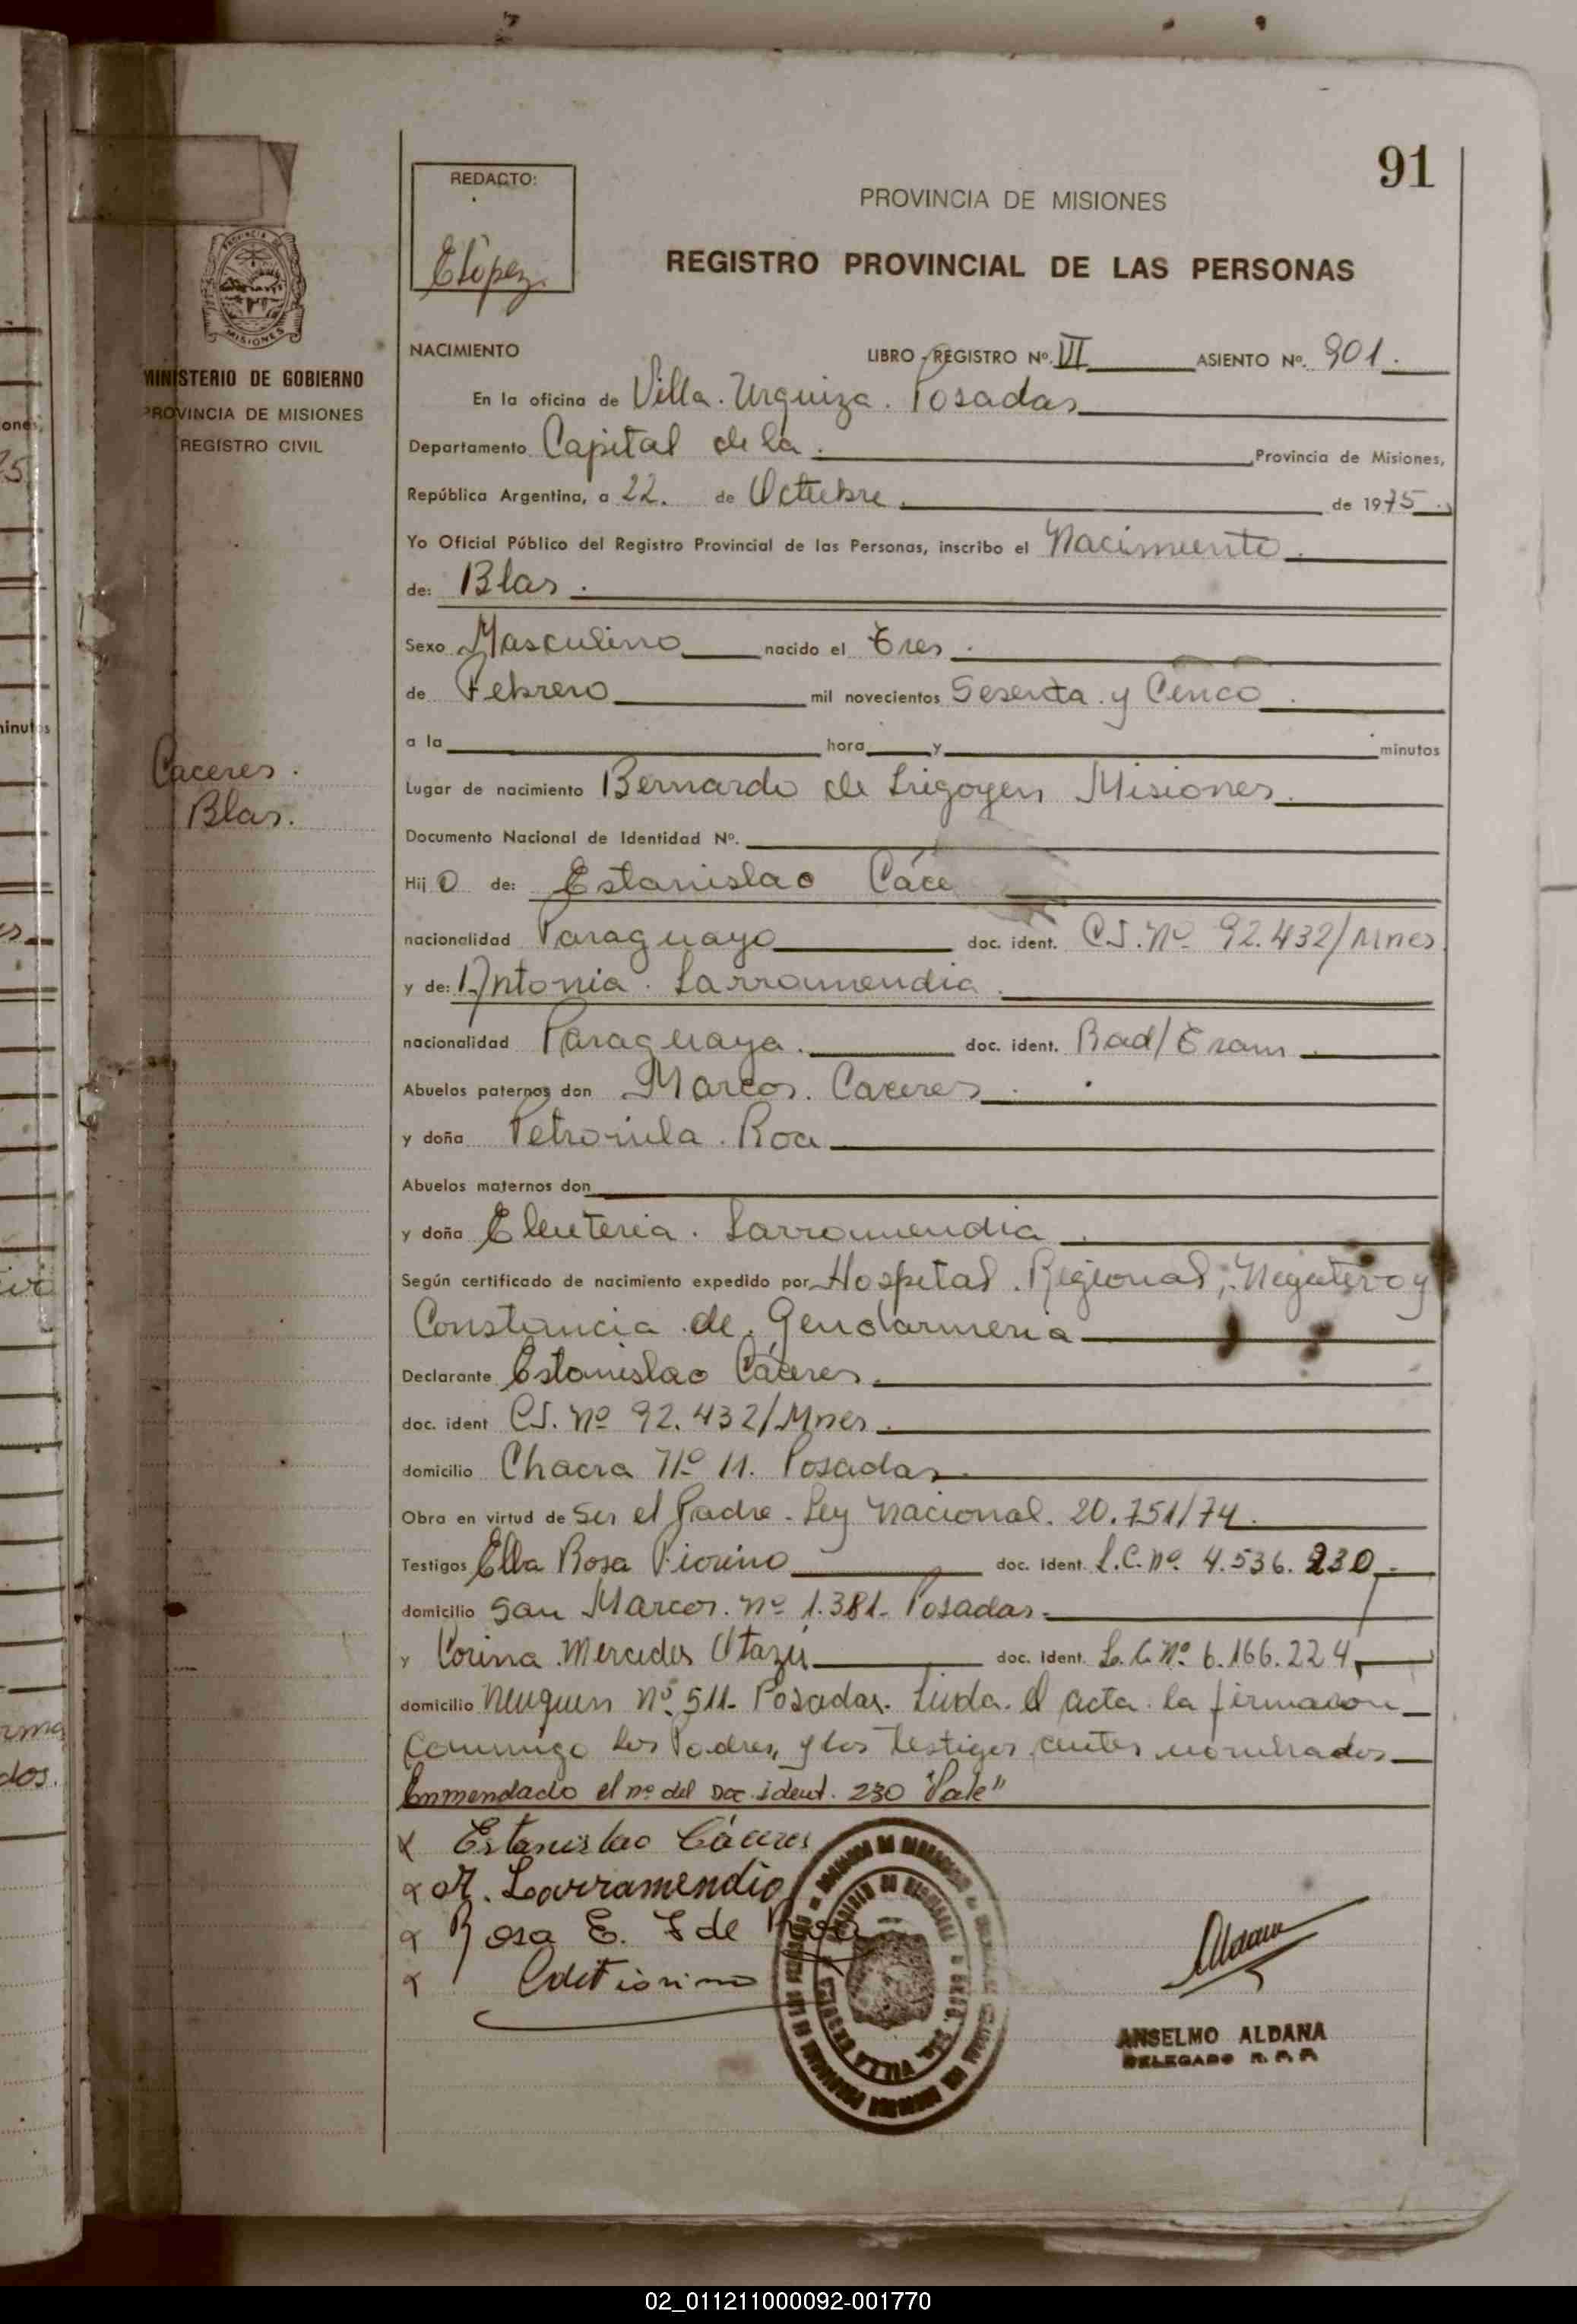 91
REDACTO:
ELópez
PROVINCIA DE MISIONES
REGISTRO PROVINCIAL DE LAS PERSONAS
MISIONES
MINISTERIO DE GOBIERNO
PROVINCIA DE MISIONES
REGISTRO CIVIL
NACIMIENTO LIBRO - REGISTRO Nº. VI ASIENTO Nº. 901.
En la oficina de Villa. Urquiza. Posadas
Departamento Capital de la. Provincia de Misiones,
República Argentina, a 22. de Octubre de 1975.
Yo Oficial Público del Registro Provincial de las Personas, inscribo el Nacimiento.
de: Blas.
Sexo Masculino nacido el Tres.
de Febrero mil novecientos Sesenta y Cinco.
a la hora y minutos
Caceres.
Blas.
Lugar de nacimiento Bernardo de Irigoyen Misiones.
Documento Nacional de Identidad Nº.
Hij o de: Estanislao Cáce
nacionalidad Paraguayo doc. ident. C.I. Nº 92.432/Mnes.
y de: Antonia. Larramendia.
nacionalidad Paraguaya. doc. ident. Rad/Tram.
Abuelos paternos don Marcos. Caceres.
y doña Petronila. Roa
Abuelos maternos don
y doña Eleuteria. Larramendia.
Según certificado de nacimiento expedido por Hospital. Regional, Negativo y
Constancia de. Gendarmeria
Declarante Estanislao Cáceres.
doc. ident C.I. Nº 92.432/Mnes.
domicilio Chacra Nº 11. Posadas.
Obra en virtud de Ser el Padre - Ley Nacional. 20.751/74.
Testigos Elba Rosa Fiorino doc. ident. L.C. Nº. 4.536.230.
domicilio San Marcos. Nº 1.381. Posadas.
y Corina Mercedes Otazú doc. ident. L.C. Nº. 6.166.224,
domicilio Neuquen Nº. 511. Posadas. Leida. el acta. la firmaron
conmigo los Padres, y los testigos antes nombrados
Enmendado el nº del Doc. ident. 230 "Vale"
x Estanislao Cáceres
x A. Larramendia
x Rosa E. F de
x
ANSELMO ALDANA
DELEGADO R. P. P.
02_011211000092-001770